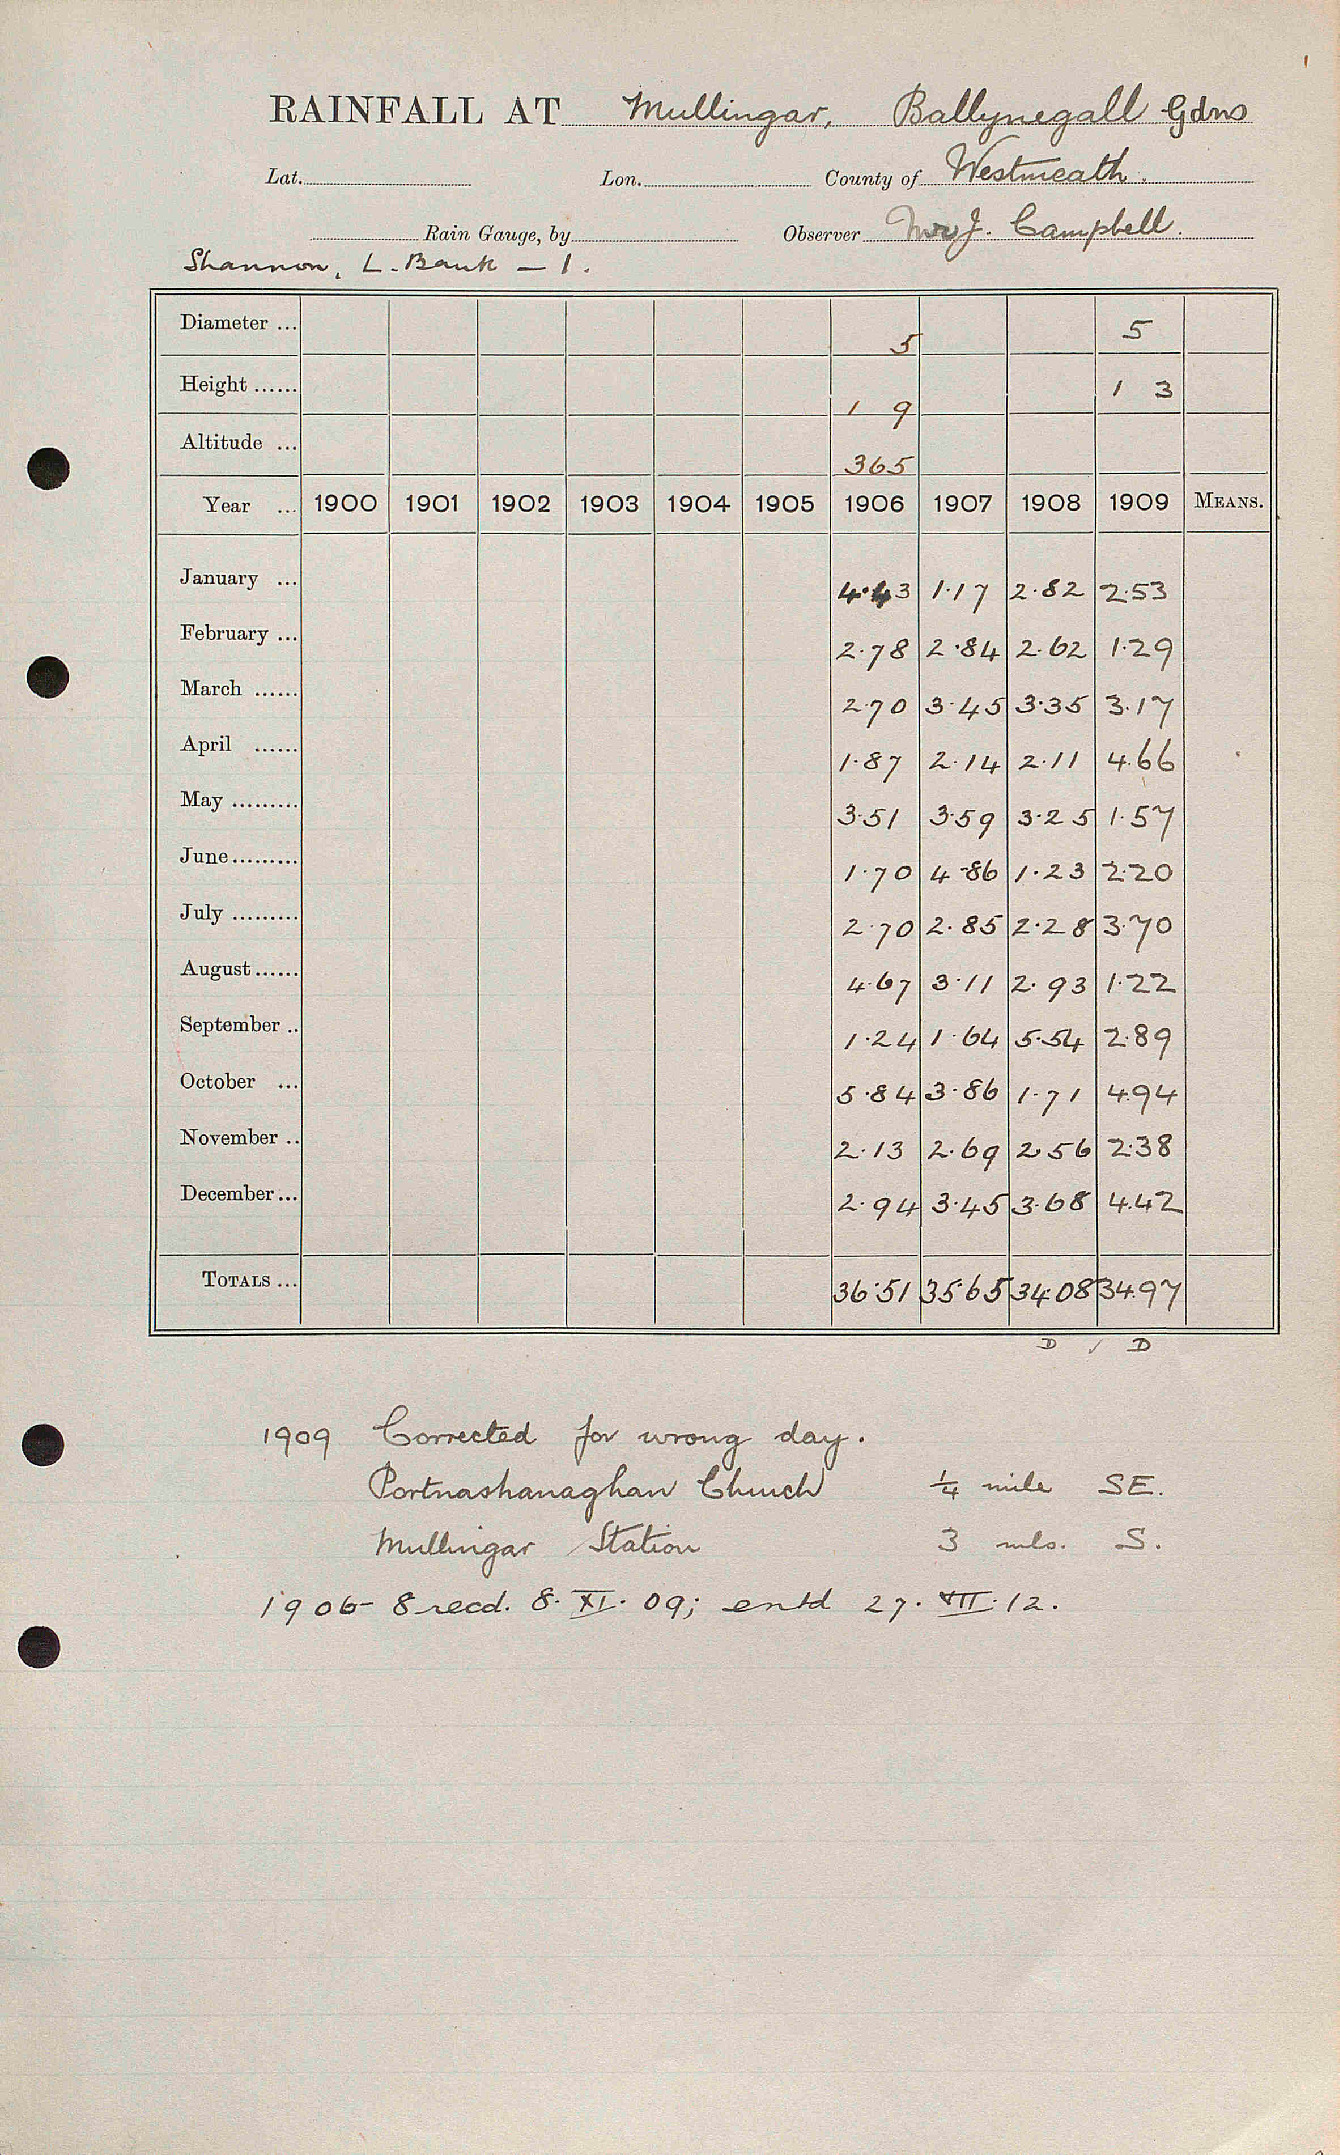 RAINFALL AT Mullingar, Ballynegall Gdns
Lat. Lon. County of Westmeath.
Rain Gauge, by Observer Mr J. Campbell.
Shannon, L. Bank — 1.
Diameter ... 5 5
Height ...... 1 9 1 3
Altitude ... 365
Year ... 1900 1901 1902 1903 1904 1905 1906 1907 1908 1909 MEANS.
January ... 4.43 1.17 2.82 2.53
February ... 2.78 2.84 2.62 1.29
March ...... 2.70 3.45 3.35 3.17
April ...... 1.87 2.14 2.11 4.66
May ......... 3.51 3.59 3.25 1.57
June......... 1.70 4.86 1.23 2.20
July ......... 2.70 2.85 2.28 3.70
August...... 4.67 3.11 2.93 1.22
September .. 1.24 1.64 5.54 2.89
October ... 5.84 3.86 1.71 4.94
November .. 2.13 2.69 2.56 2.38
December... 2.94 3.45 3.68 4.42
TOTALS ... 36.51 35.65 34.08 34.97
D / D
1909 Corrected for wrong day.
Portnashanaghan Church ¼ mile SE.
Mullingar Station 3 mls. S.
1906-8 recd. 8.XI.09; entd 27.VII.12.